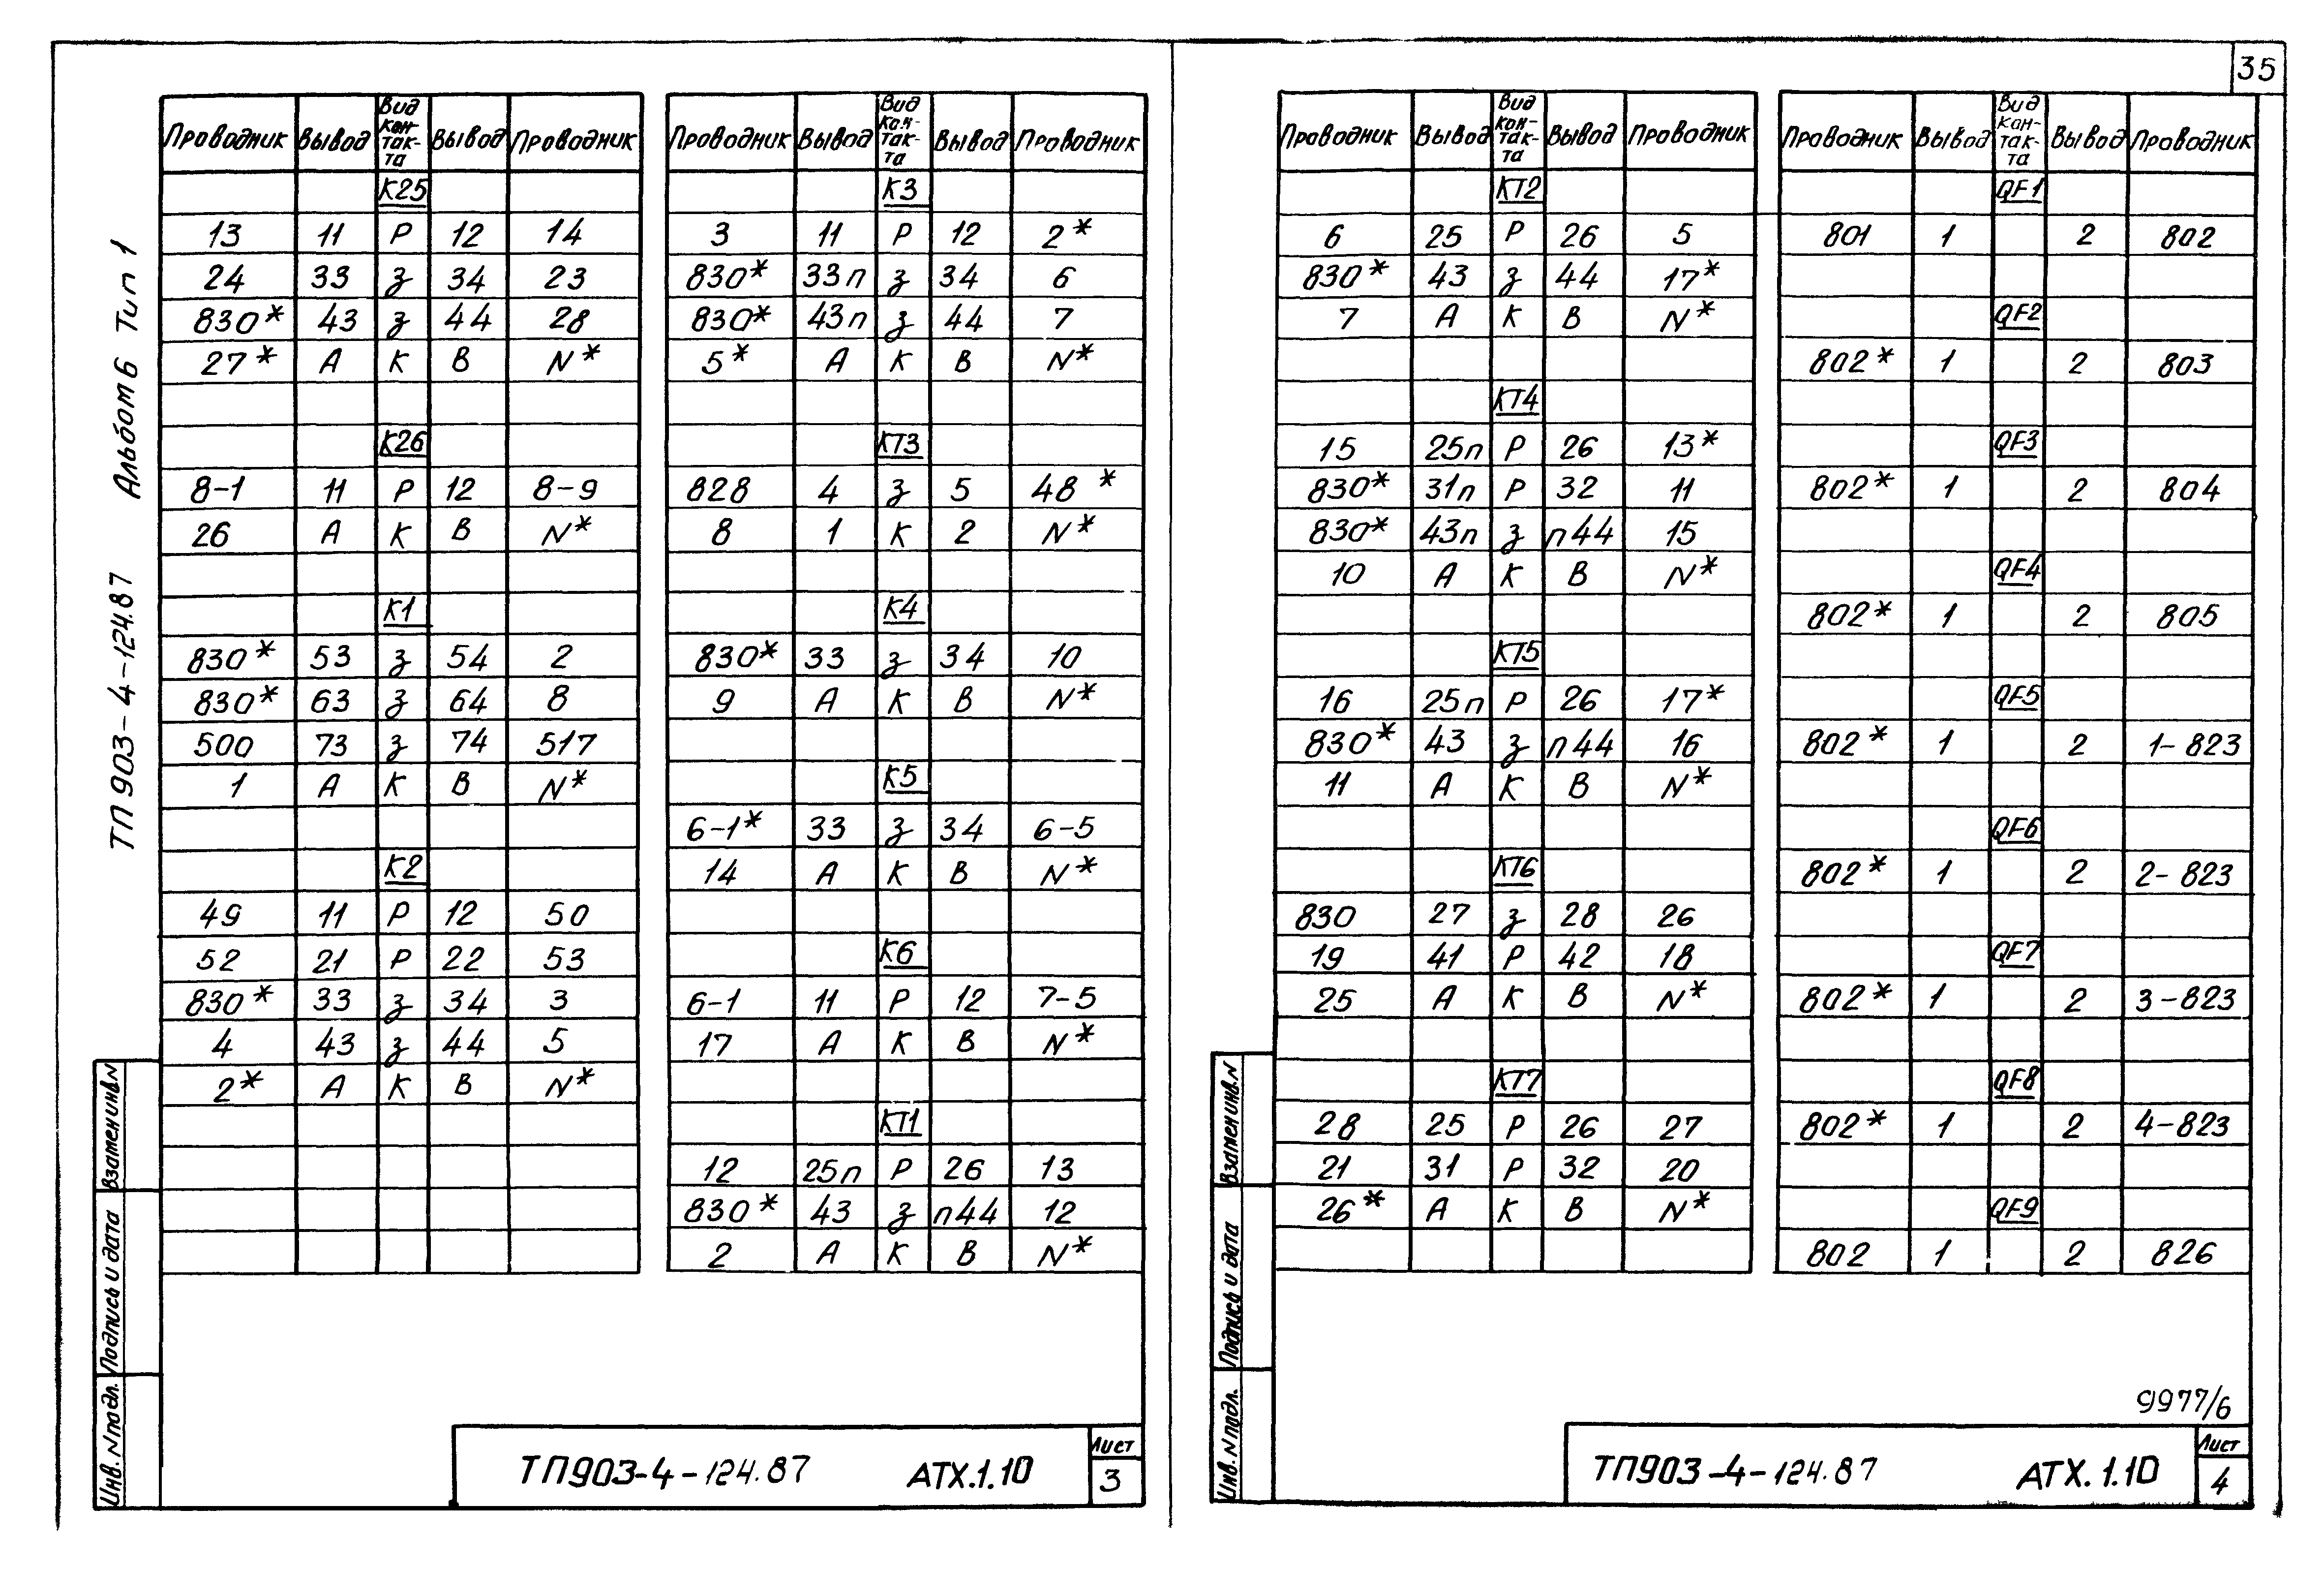 35
Альбом 6 Тип 1
ТП 903-4-124.87
Проводник Вывод Вид кон-так-та Вывод Проводник
К25
13 11 Р 12 14
24 33 з 34 23
830* 43 з 44 28
27* А К В N*
К26
8-1 11 Р 12 8-9
26 А К В N*
К1
830* 53 з 54 2
830* 63 з 64 8
500 73 з 74 517
1 А К В N*
К2
49 11 Р 12 50
52 21 Р 22 53
830* 33 з 34 3
4 43 з 44 5
2* А К В N*
Проводник Вывод Вид кон-так-та Вывод Проводник
К3
3 11 Р 12 2*
830* 33п з 34 6
830* 43п з 44 7
5* А К В N*
КТ3
828 4 з 5 48*
8 1 К 2 N*
К4
830* 33 з 34 10
9 А К В N*
К5
6-1* 33 з 34 6-5
14 А К В N*
К6
6-1 11 Р 12 7-5
17 А К В N*
КТ1
12 25п Р 26 13
830* 43 з п44 12
2 А К В N*
Взамен инв. N
Подпись и дата
Инв. N подл.
ТП903-4-124.87 АТХ.1.10
Лист
3
Проводник Вывод Вид кон-так-та Вывод Проводник
КТ2
6 25 Р 26 5
830* 43 з 44 17*
7 А К В N*
КТ4
15 25п Р 26 13*
830* 31п Р 32 11
830* 43п з п44 15
10 А К В N*
КТ5
16 25п Р 26 17*
830* 43 з п44 16
11 А К В N*
КТ6
830 27 з 28 26
19 41 Р 42 18
25 А К В N*
КТ7
28 25 Р 26 27
21 31 Р 32 20
26* А К В N*
Проводник Вывод Вид кон-так-та Вывод Проводник
QF1
801 1 2 802
QF2
802* 1 2 803
QF3
802* 1 2 804
QF4
802* 1 2 805
QF5
802* 1 2 1-823
QF6
802* 1 2 2-823
QF7
802* 1 2 3-823
QF8
802* 1 2 4-823
QF9
802 1 2 826
Взамен инв. N
Подпись и дата
Инв. N подл.
9977/6
ТП903-4-124.87 АТХ.1.10
Лист
4